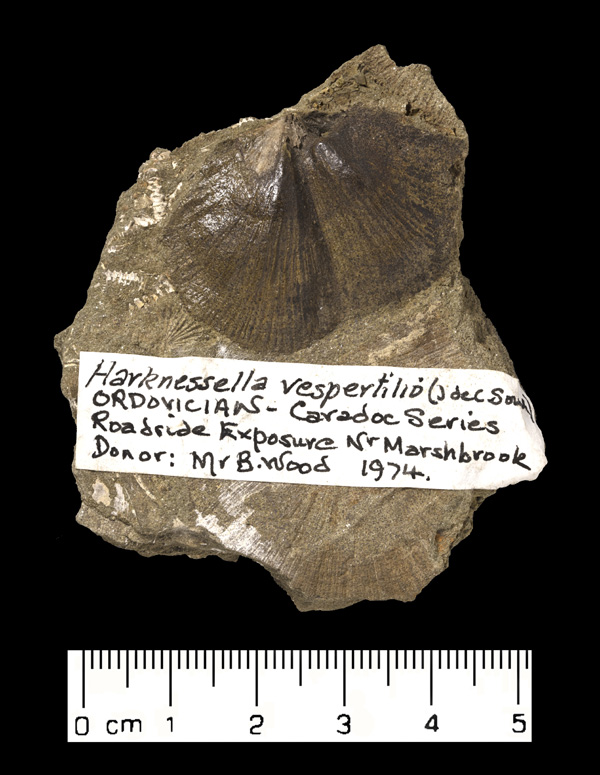 Harknessella vespertilio (J de C
ORDOVICIAN - Caradoc Series
Roadside Exposure Nr Marshbrook
Donor: Mr B. Wood 1974.
0 cm 1 2 3 4 5